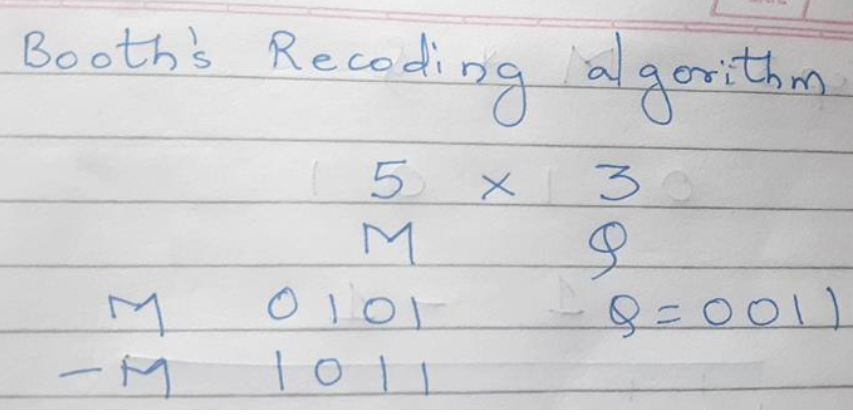 Booth's Recoding algorithm
5 × 3
M Q
M 0101 Q=0011
-M 1011